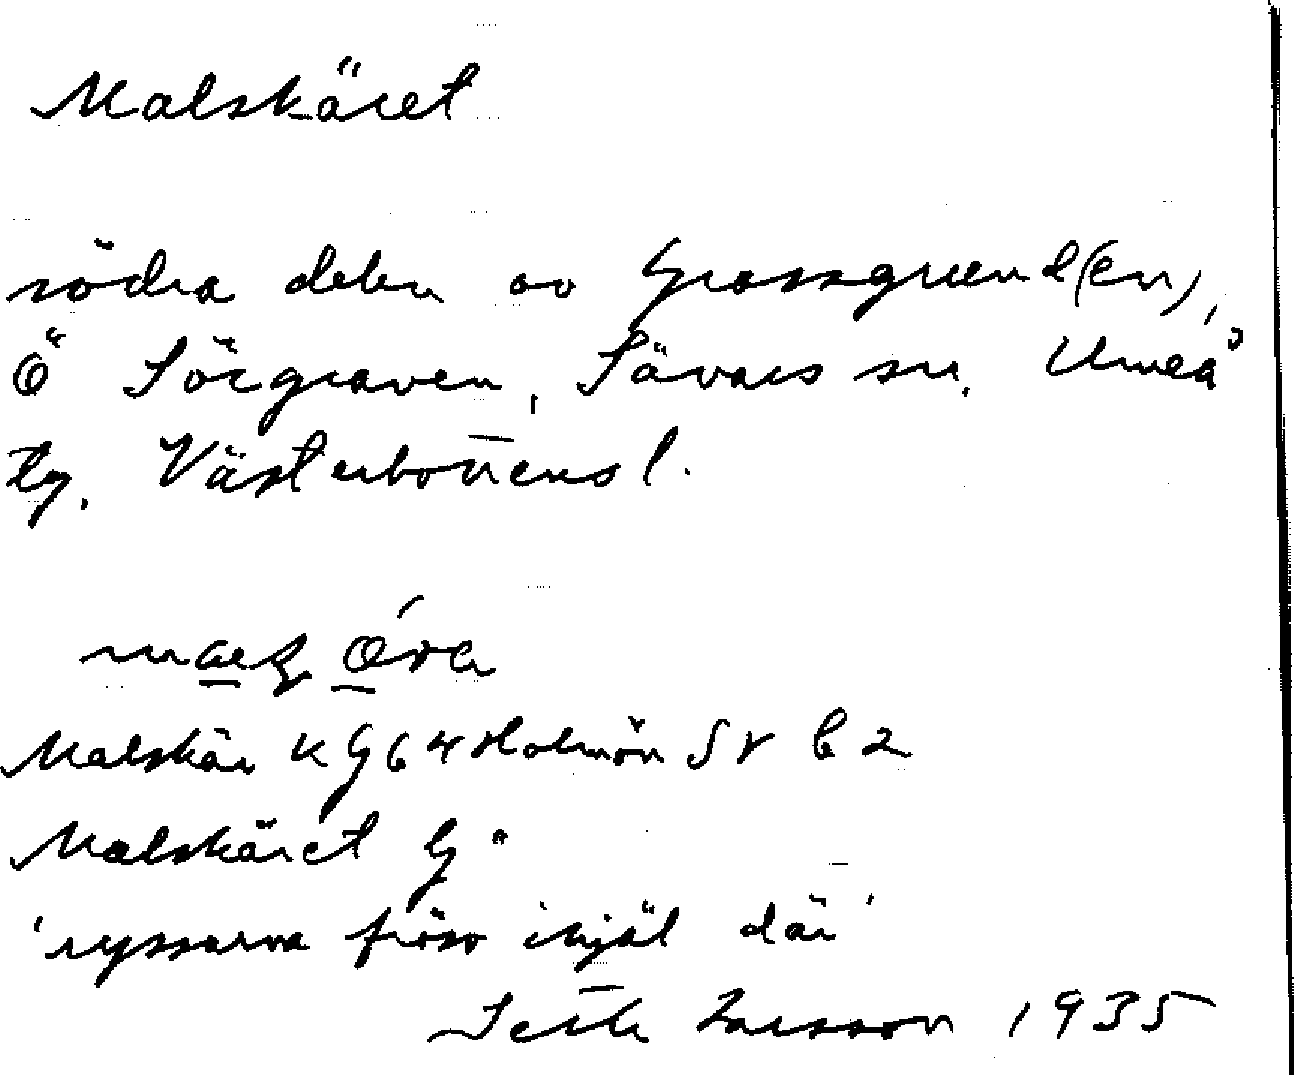 Malskäret
södra delen av Grossgrund(en),
Ö Sörgraven, Sävars sn. Umeå
tg. Västerbottens l.
Malskär KG 64 Holmön SV b 2
Malskäret G "
'ryssarna frös ihjäl där'
Larsson 1935